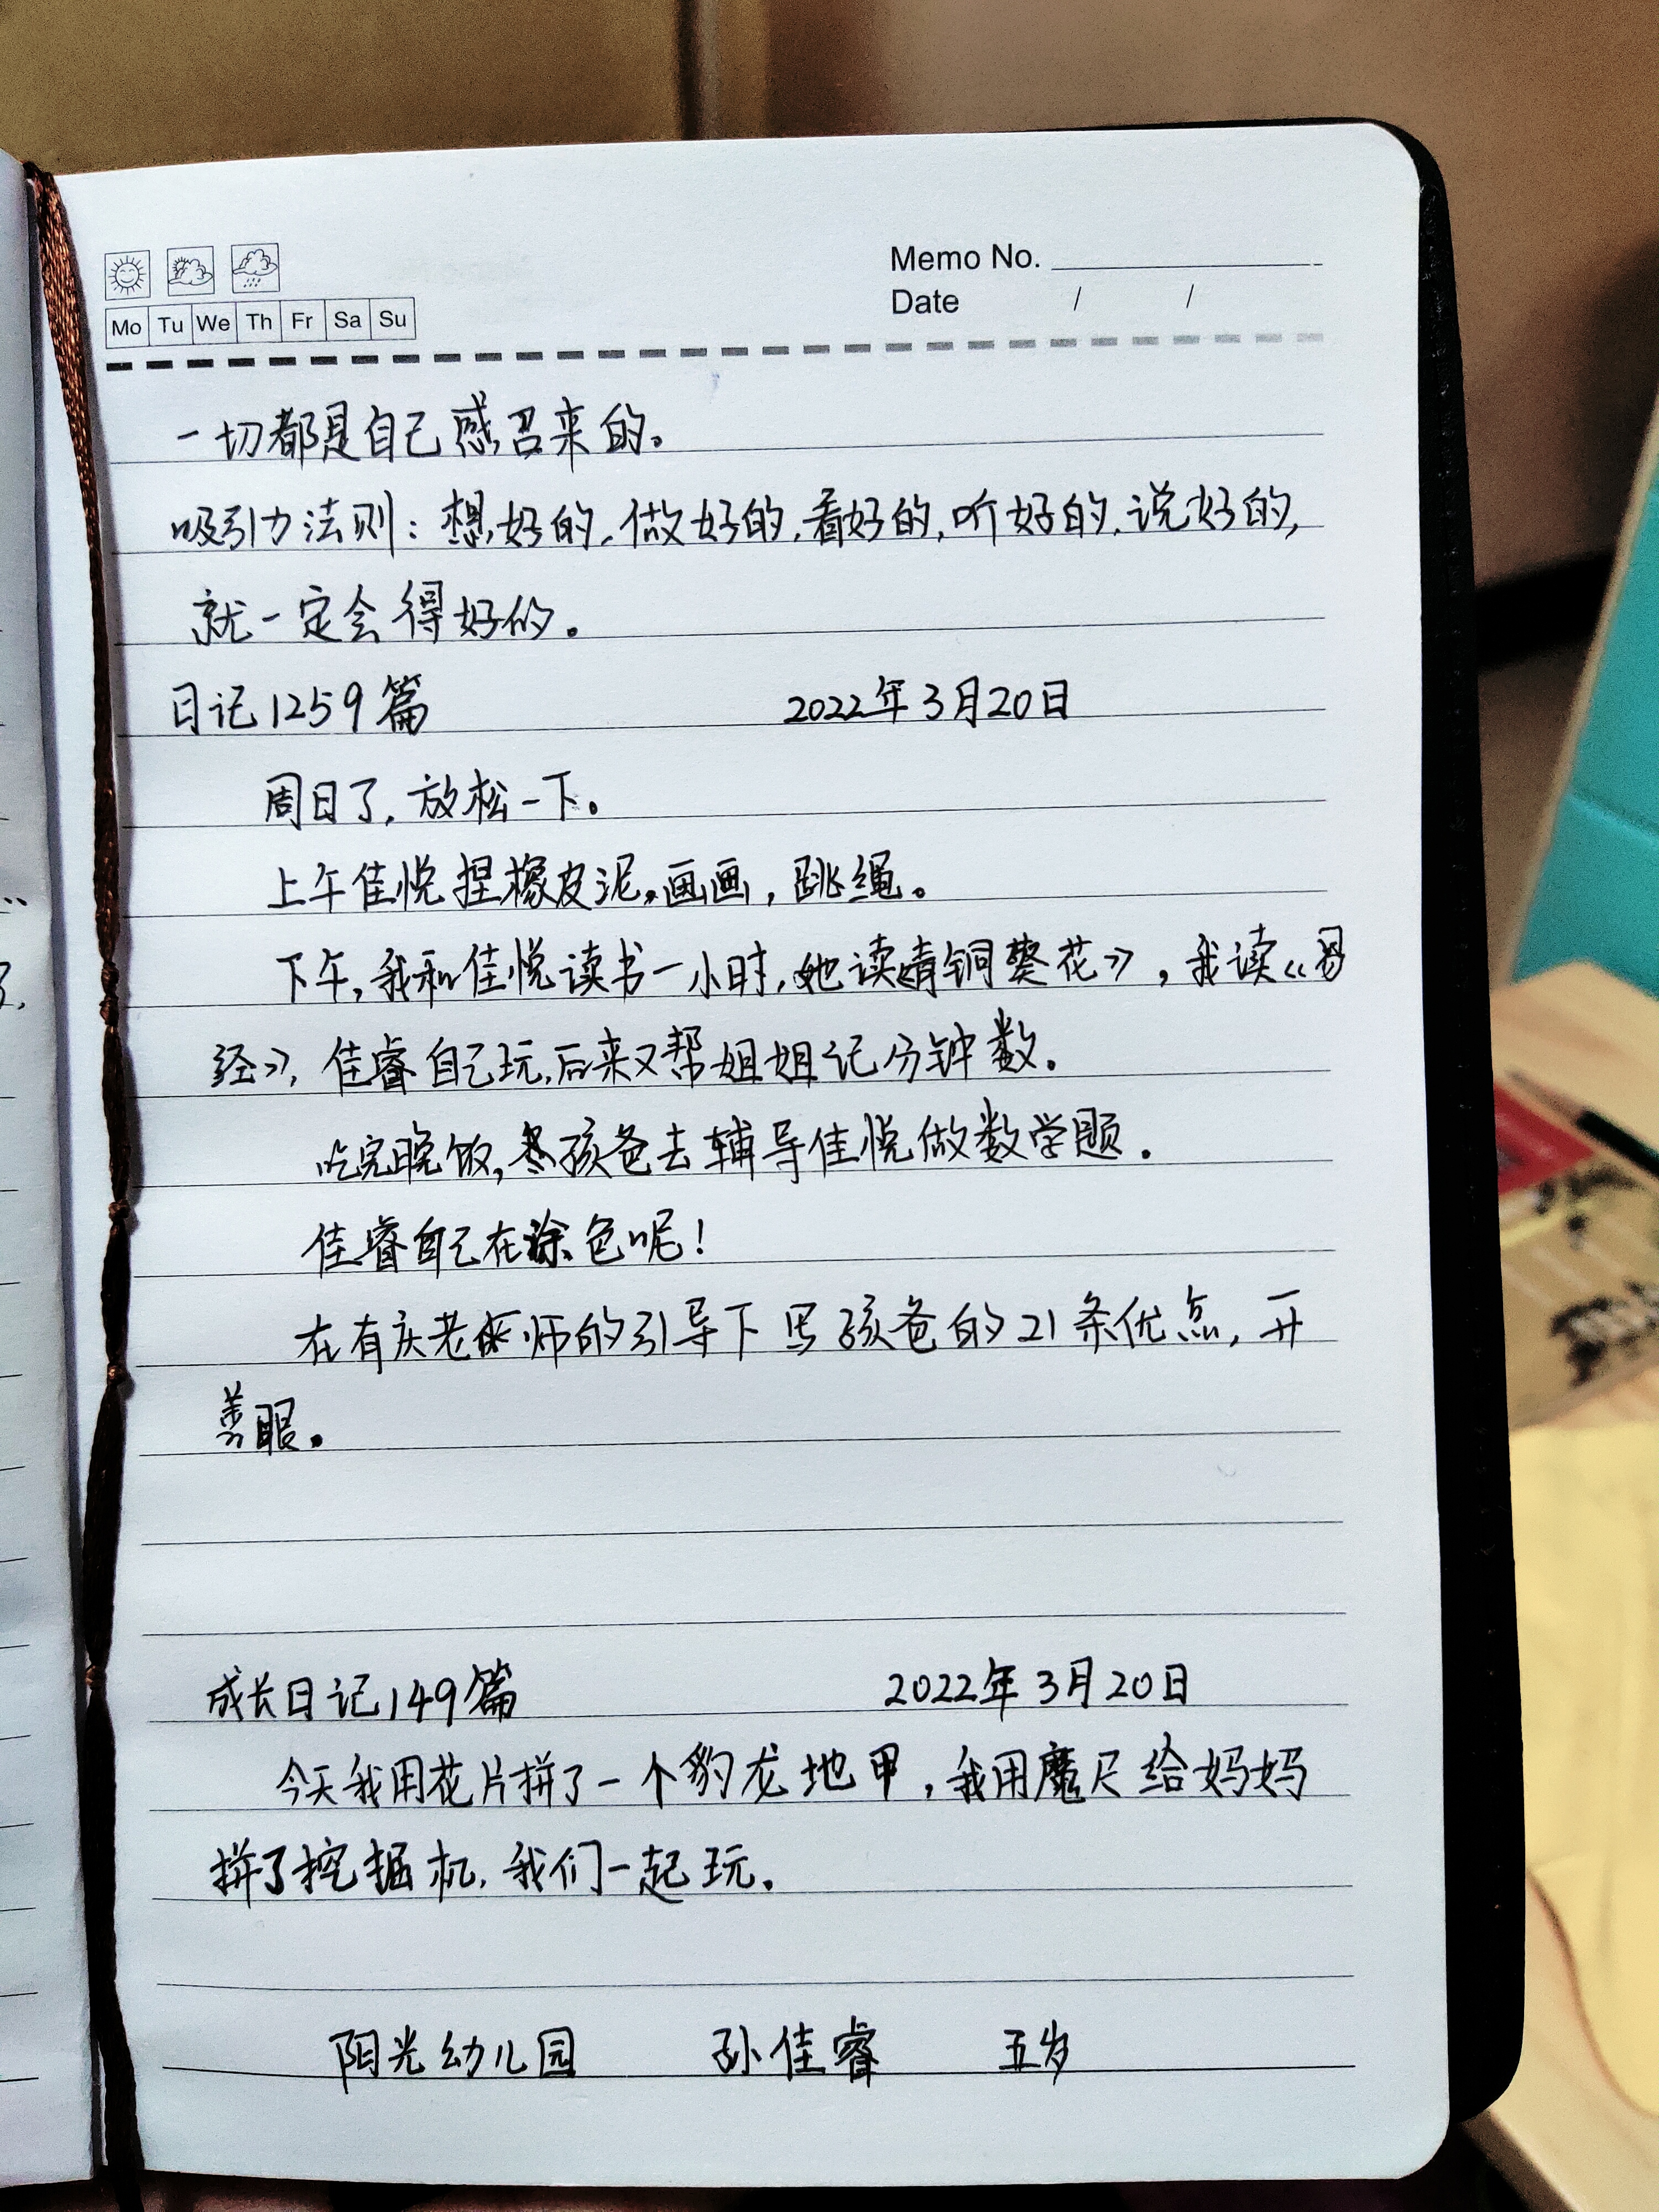 Memo No.
Mo Tu We Th Fr Sa Su
Date / /
一切都是自己感召来的。
吸引力法则：想好的，做好的，看好的，听好的，说好的，
就一定会得好的。
日记1259篇 2022年3月20日
周日了，放松一下。
上午佳悦捏橡皮泥，画画，跳绳。
下午，我和佳悦读书一小时，她读《青铜葵花》，我读《易
经》，佳睿自己玩，后来又帮姐姐记分钟数。
吃完晚饭，孩爸去辅导佳悦做数学题。
佳睿自己在涂色呢！
在有庆老师的引导下写孩爸的21条优点，开
善眼。
成长日记149篇 2022年3月20日
今天我用花片拼了一个豹龙地甲，我用魔尺给妈妈
拼了挖掘机，我们一起玩。
阳光幼儿园 孙佳睿 五岁